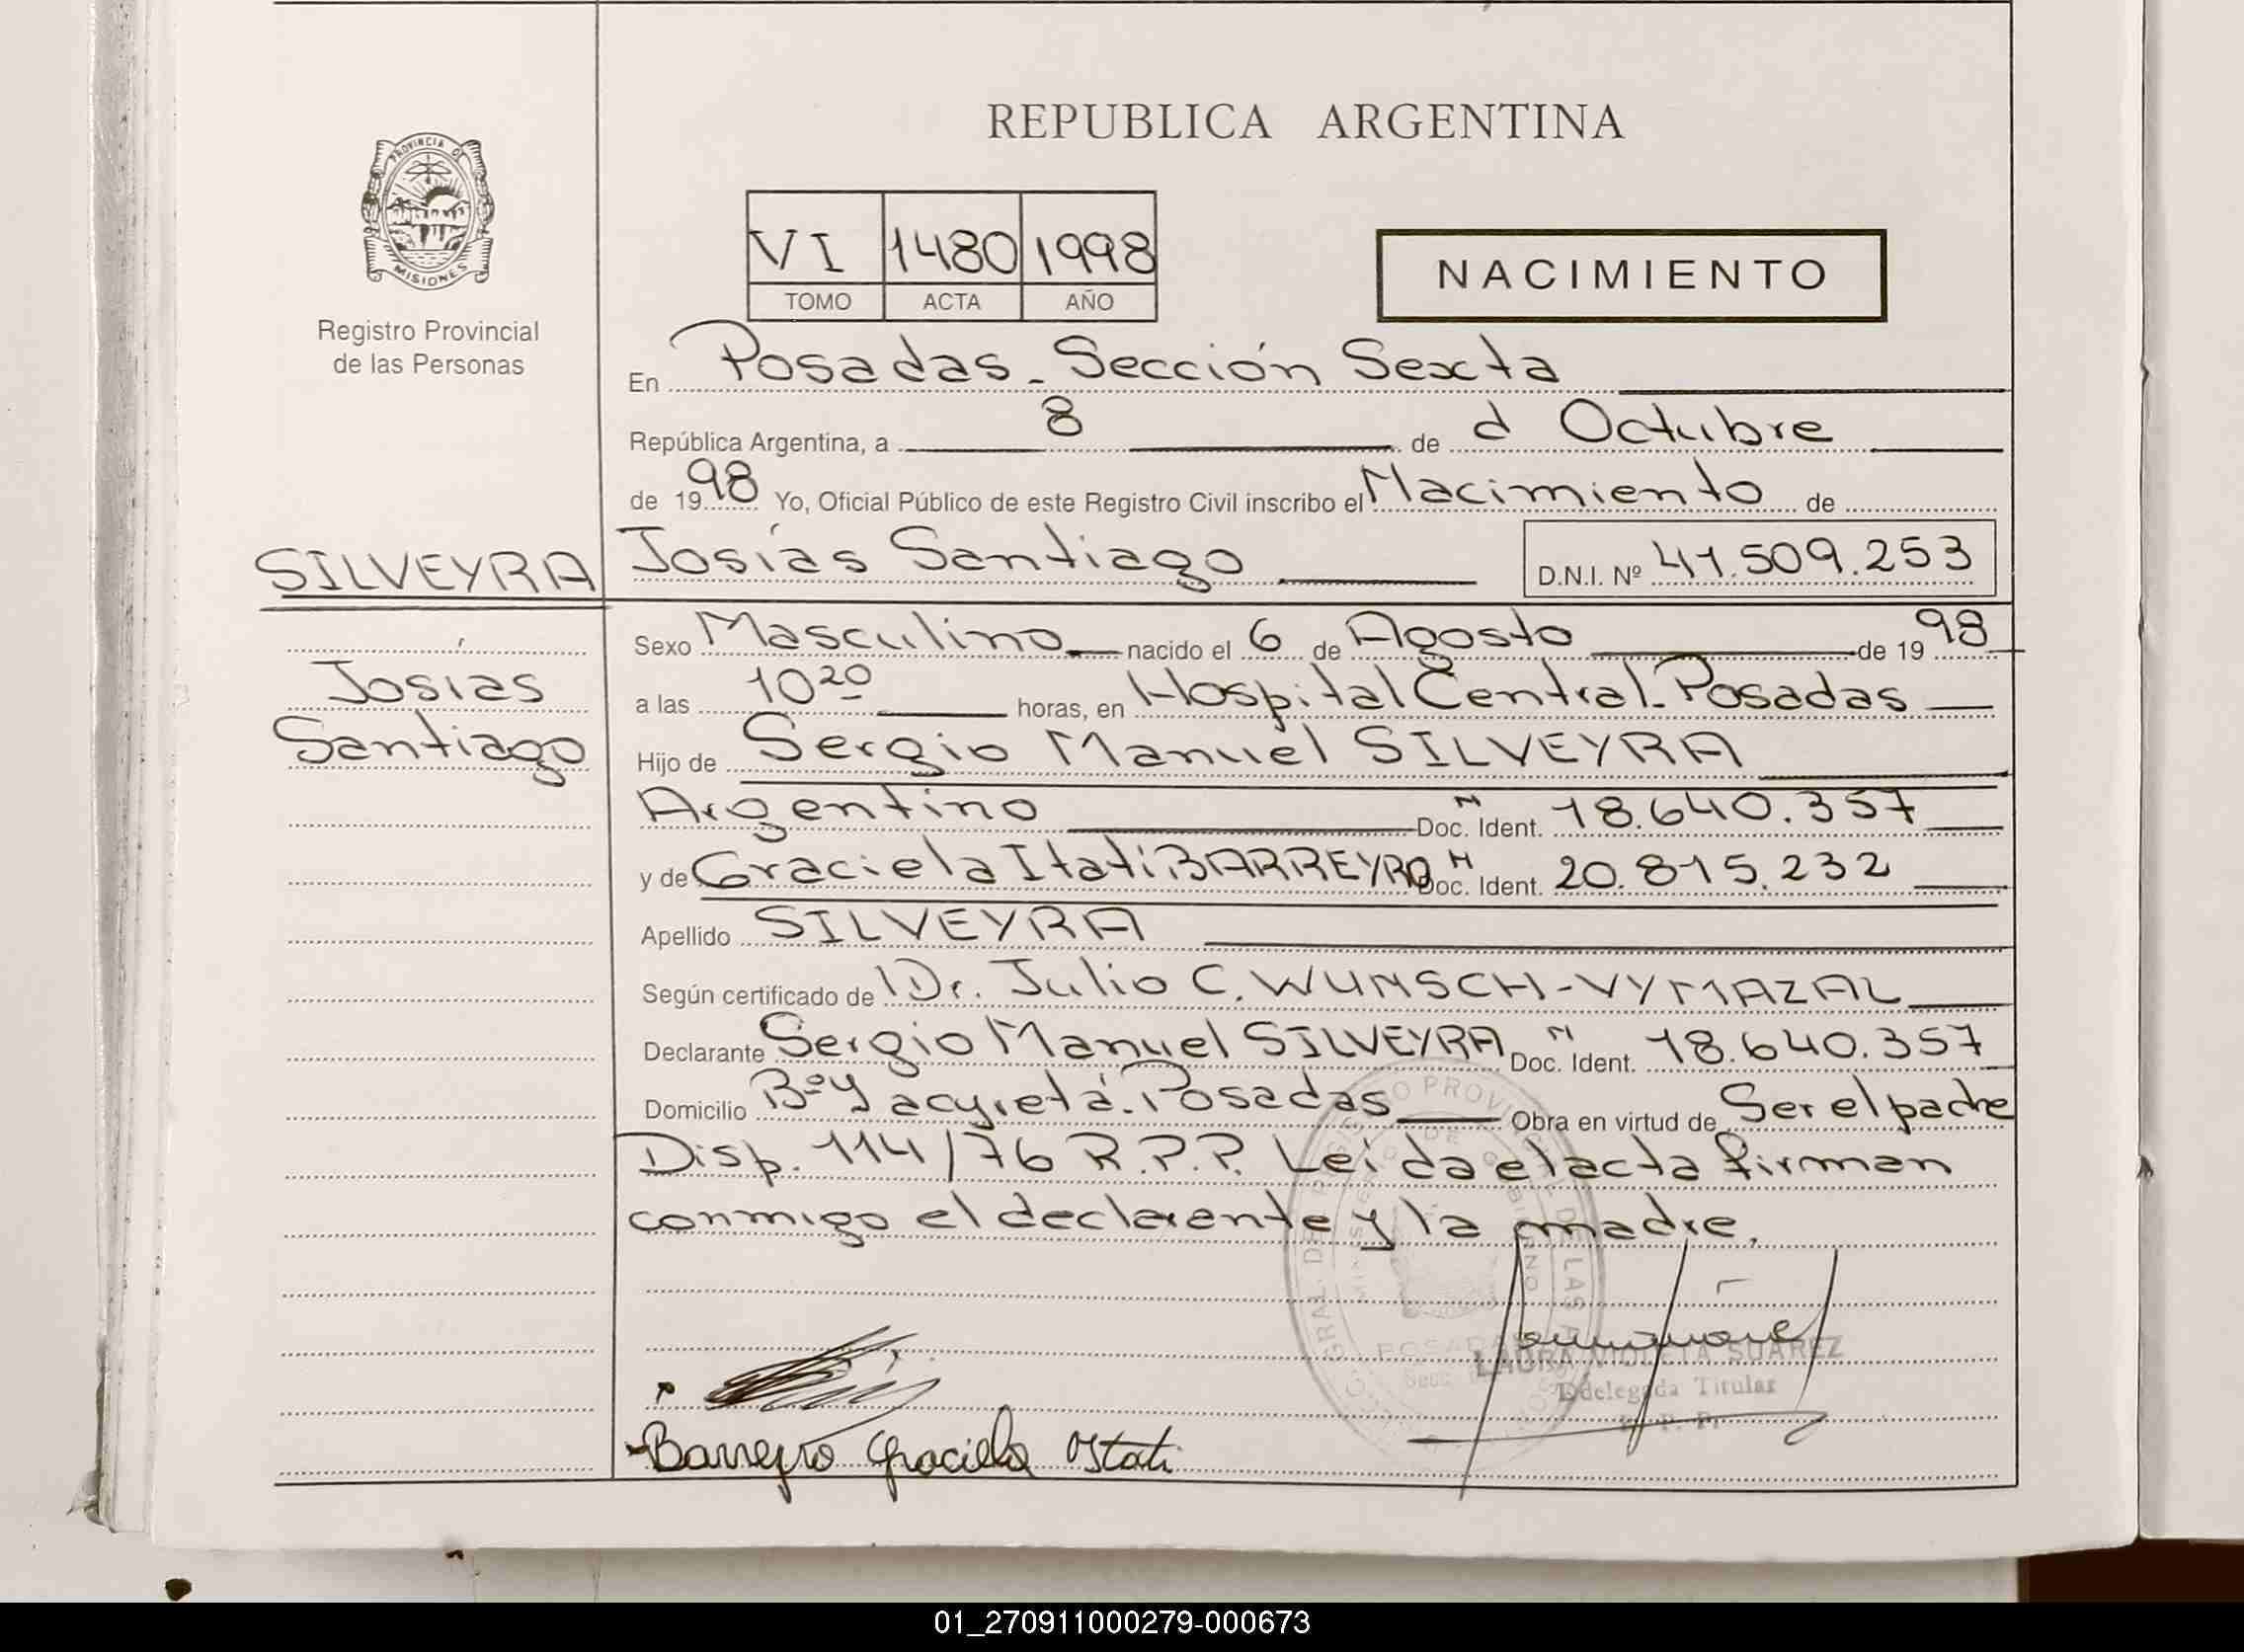 REPUBLICA ARGENTINA
PROVINCIA D
MISIONES
Registro Provincial
de las Personas
VI 1480 1998
TOMO ACTA AÑO
NACIMIENTO
En Posadas - Sección Sexta
República Argentina, a 8 de d Octubre
de 1998 Yo, Oficial Público de este Registro Civil inscribo el Nacimiento de
SILVEYRA Josías Santiago D.N.I. Nº 41.509.253
Sexo Masculino nacido el 6 de Agosto de 1998
Josías
a las 10 20 horas, en Hospital Central - Posadas
Santiago
Hijo de Sergio Manuel SILVEYRA
Argentino Doc. Ident. M 18.640.357
y de Graciela Itatí BARREYRO Doc. Ident. N 20.815.232
Apellido SILVEYRA
Según certificado de Dr. Julio C. WUNSCH-VYMAZAL
Declarante Sergio Manuel SILVEYRA Doc. Ident. N 18.640.357
Domicilio Bº Yacyretá. Posadas Obra en virtud de Ser el padre
Disp. 114/76 R.P.P. Leída el acta firman
conmigo el declarante y la madre.
LAURA VIOLETA SUAREZ
Delegada Titular
R. P. P.
Barreyro Graciela Itati
01_270911000279-000673